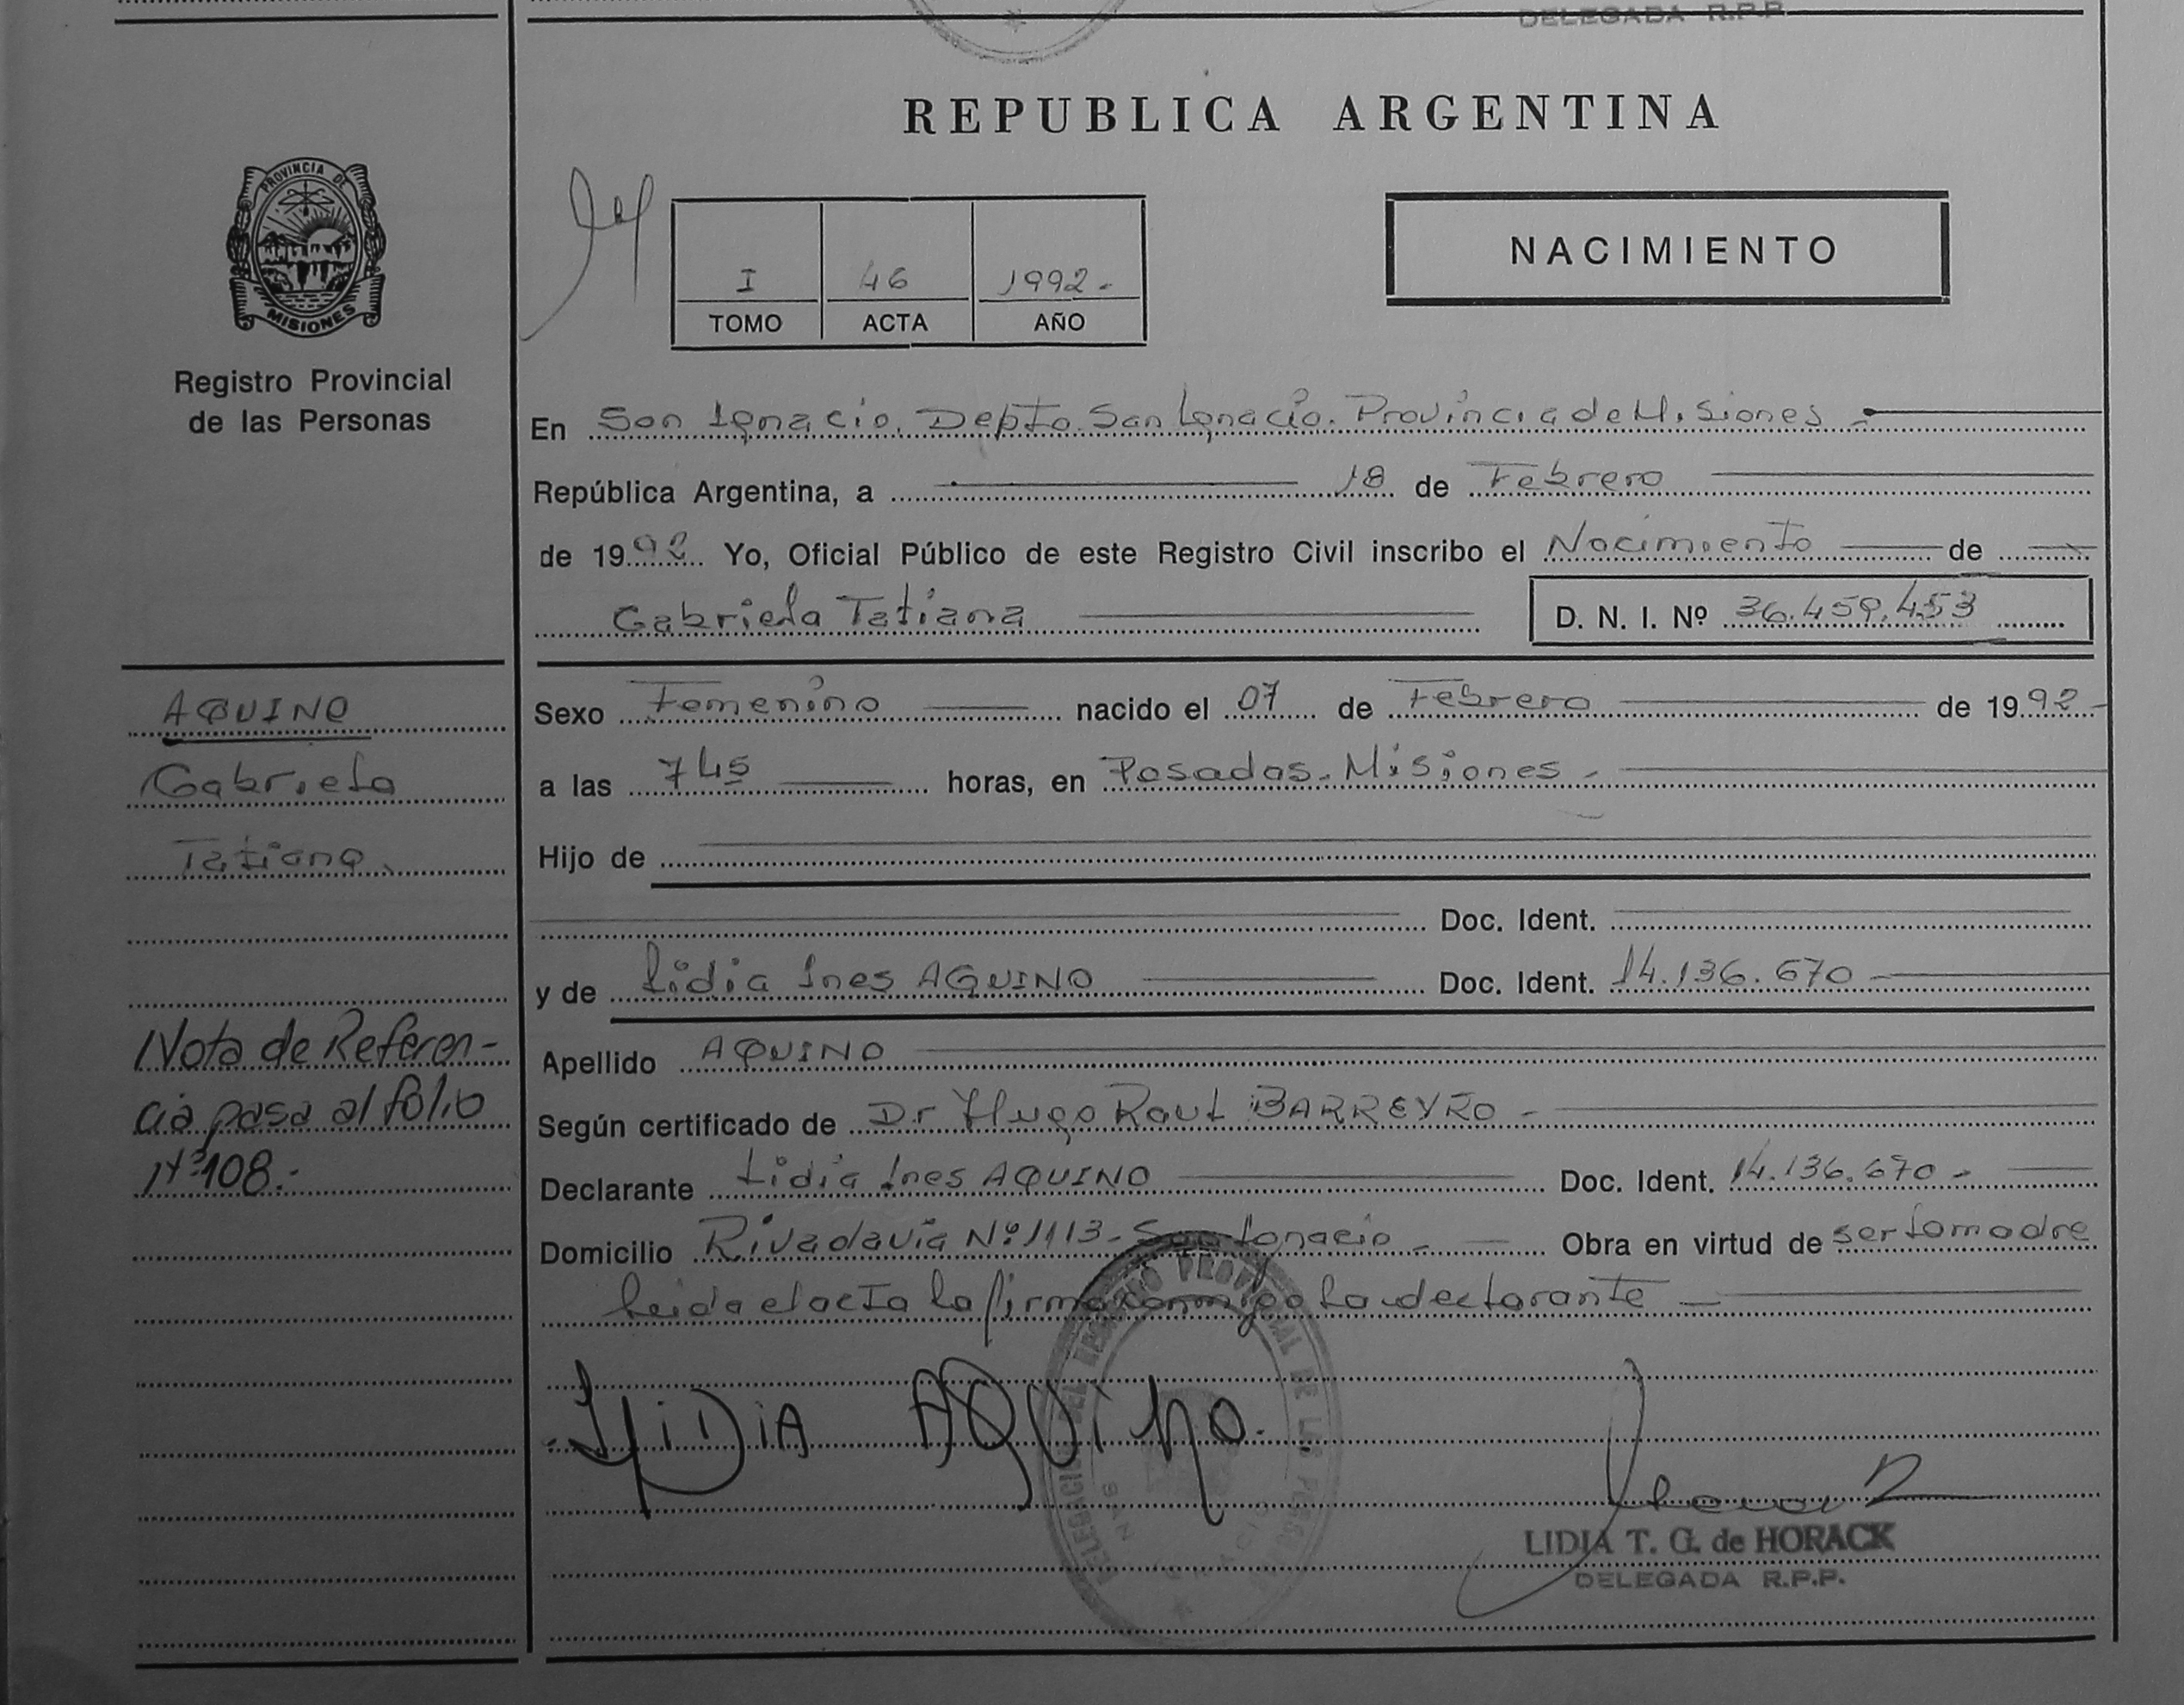 DELEGADA R.P.P.
REPUBLICA ARGENTINA
PROVINCIA DE
MISIONES
Registro Provincial
de las Personas
I 46 1992.
TOMO ACTA AÑO
NACIMIENTO
En San Ignacio. Depto. San Ignacio. Provincia de Misiones -
República Argentina, a 18 de Febrero
de 1992 Yo, Oficial Público de este Registro Civil inscribo el Nacimiento de
Gabriela Tatiana D. N. I. Nº 36.459.453
AQUINO
Gabriela
Tatiana
Nota de Referen-
cia pasa al folio
Nº 108.-
Sexo Femenino nacido el 07 de Febrero de 1992-
a las 7 45 horas, en Posadas - Misiones -
Hijo de
Doc. Ident.
y de Lidia Ines AQUINO Doc. Ident. 14.136.670
Apellido AQUINO
Según certificado de Dr Hugo Raul BARREYRO -
Declarante Lidia Ines AQUINO Doc. Ident. 14.136.670 -
Domicilio Rivadavia Nº 1113 - San Ignacio - Obra en virtud de ser la madre
leida el acta la firma conmigo la declarante
LiDiA AQUiNO.
DELEGACION DEL REGISTRO PROVINCIAL DE LAS PERSONAS
SAN IGNACIO
LIDIA T. G. de HORACK
DELEGADA R.P.P.